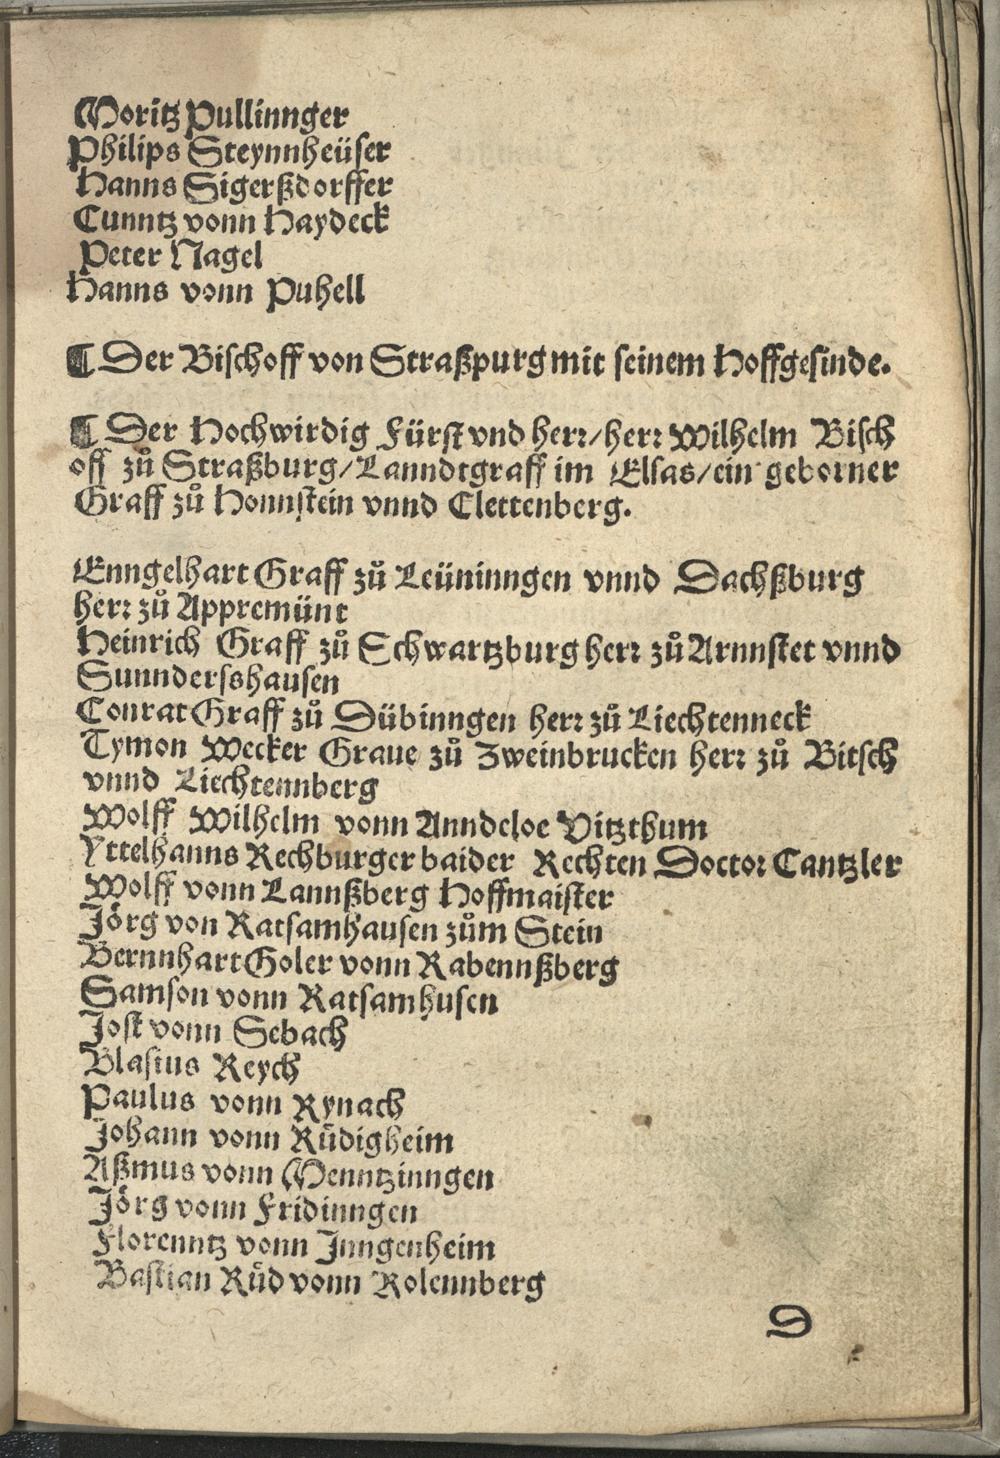 Moritz Pullinnger
Philips Steynnheüser
Hanns Sigerßdorffer
Cunntz vonn Haydeck
Peter Nagel
Hanns vonn Puhell
¶ Der Bischoff von Straßpurg mit seinem Hoffgesinde.
¶ Der Hochwirdig Fürst vnd herr/herr Wilhelm Bisch
off zů Straßburg/Lanndtgraff im Elsas/ein geborner
Graff zů Honnstein vnnd Clettenberg.
Enngelhart Graff zů Leüninngen vnnd Dachßburg
herr zů Appremünt
Heinrich Graff zů Schwartzburg herr zů Arnnstet vnnd
Sunndersshausen
Conrat Graff zů Dübinngen herr zů Liechtenneck
Tymon Wecker Graue zů Zweinbrucken herr zů Bitsch
vnnd Liechtennberg
Wolff Wilhelm vonn Anndeloe Vitzthum
Yttelhanns Rechburger baider Rechten Doctor Cantzler
Wolff vonn Lannßberg Hoffmaister
Jörg von Ratsamhausen zům Stein
Bernnhart Goler vonn Rabennßberg
Samson vonn Ratsamhusen
Jost vonn Sebach
Blasius Reych
Paulus vonn Rynach
Johann vonn Rüdigheim
Aßmus vonn Menntzinngen
Jörg vonn Fridinngen
Florenntz vonn Jnngenheim
Bastian Rüd vonn Rolennberg
D